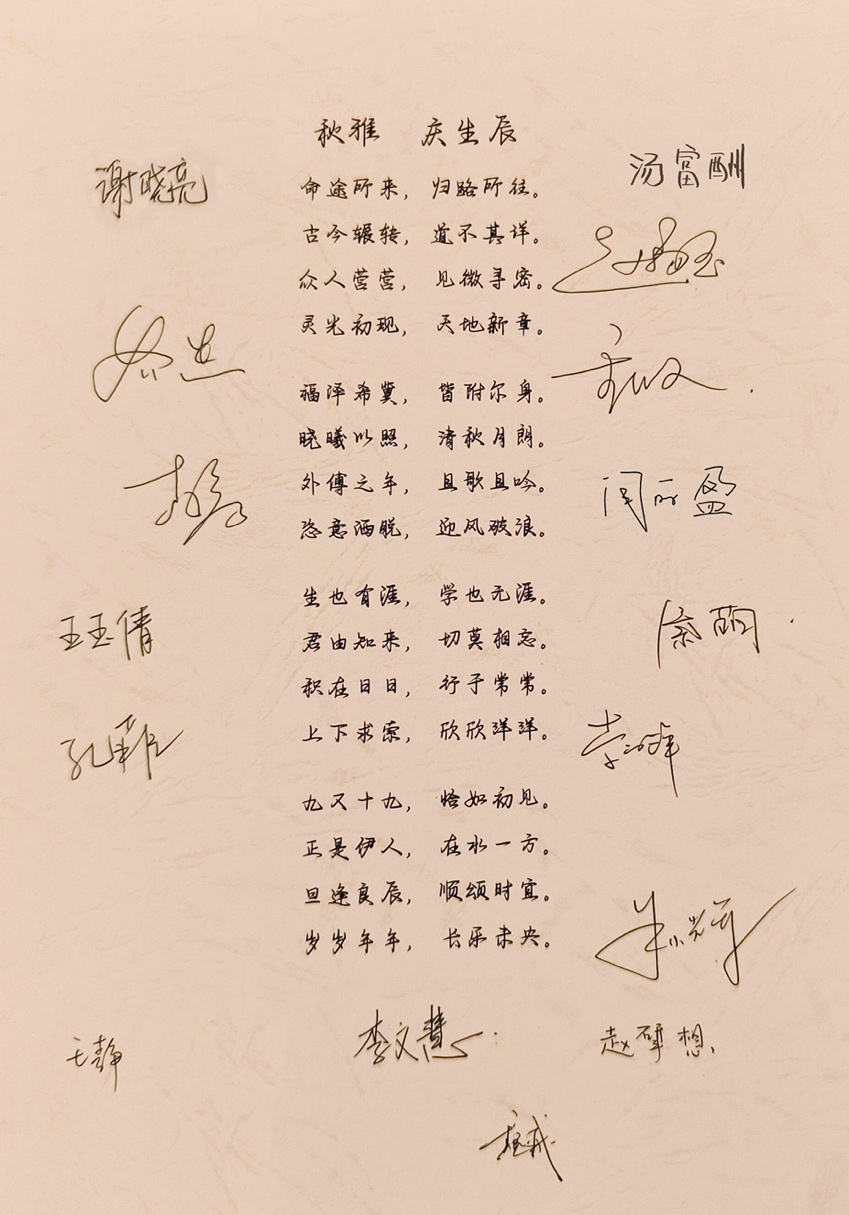 秋雅 庆生辰
命途所来，归路所往。
古今辗转，道不其详。
众人营营，见微寻密。
灵光初现，天地新章。
福泽希冀，皆附尔身。
晓曦以照，清秋月朗。
外傅之年，且歌且吟。
恣意洒脱，迎风破浪。
生也有涯，学也无涯。
君由知来，切莫相忘。
积在日日，行于常常。
上下求索，欣欣洋洋。
九又十九，恰如初见。
正是伊人，在水一方。
旦逢良辰，顺颂时宜。
岁岁年年，长乐未央。
谢晓亮
汤富酬
王玉倩
孔菲
闫丽盈
朱小辉
王静
李文慧
赵擘想